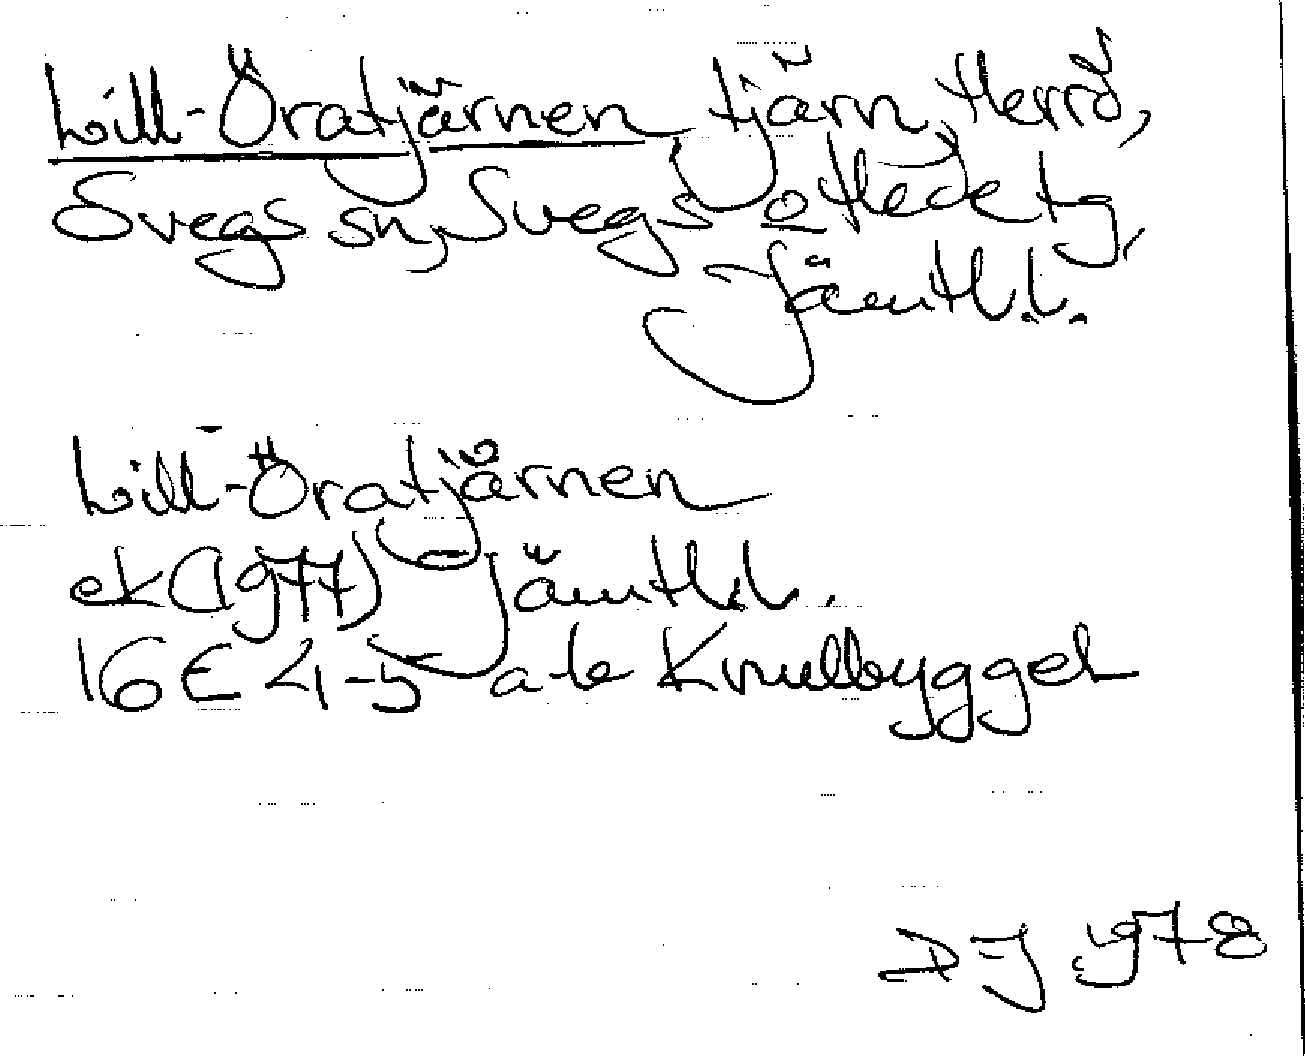 Lill-Öratjärnen, tjärn, Herrö,
Svegs sn, Svegs o Hede tg,
Jämtl.l.
Lill-Öratjärnen
ek (1977) Jämtl.l.
16E 4-5 a-b Knulbygget
DJ 1978